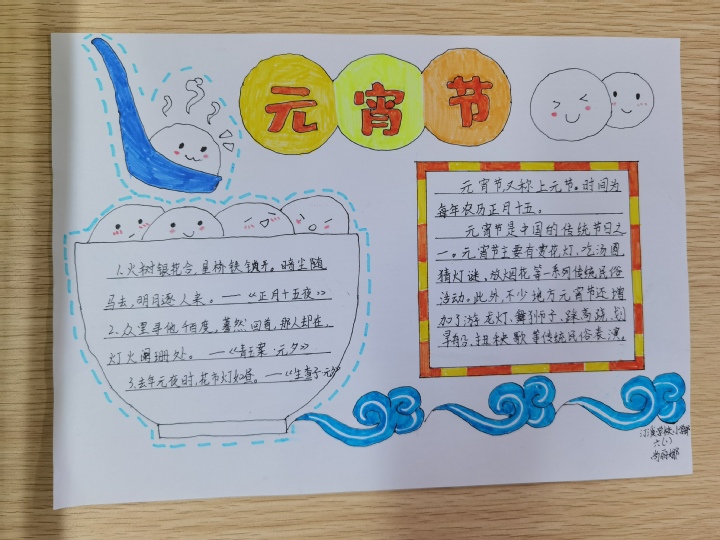 元宵节
1.火树银花合,星桥铁锁开。暗尘随
马去,明月逐人来。——《正月十五夜》
2.众里寻他千百度,蓦然回首,那人却在,
灯火阑珊处。——《青玉案·元夕》
3.去年元夜时,花市灯如昼。——《生查子·元夕》
元宵节又称上元节。时间为
每年农历正月十五。
元宵节是中国的传统节日之
一。元宵节主要有赏花灯、吃汤圆
猜灯谜、放烟花等一系列传统民俗
活动。此外,不少地方元宵节还增
加了游龙灯、舞狮子、踩高跷、划
旱船、扭秧歌等传统民俗表演。
六(1)